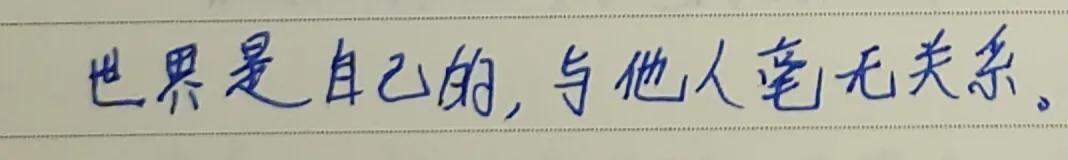 世界是自己的,与他人毫无关系。